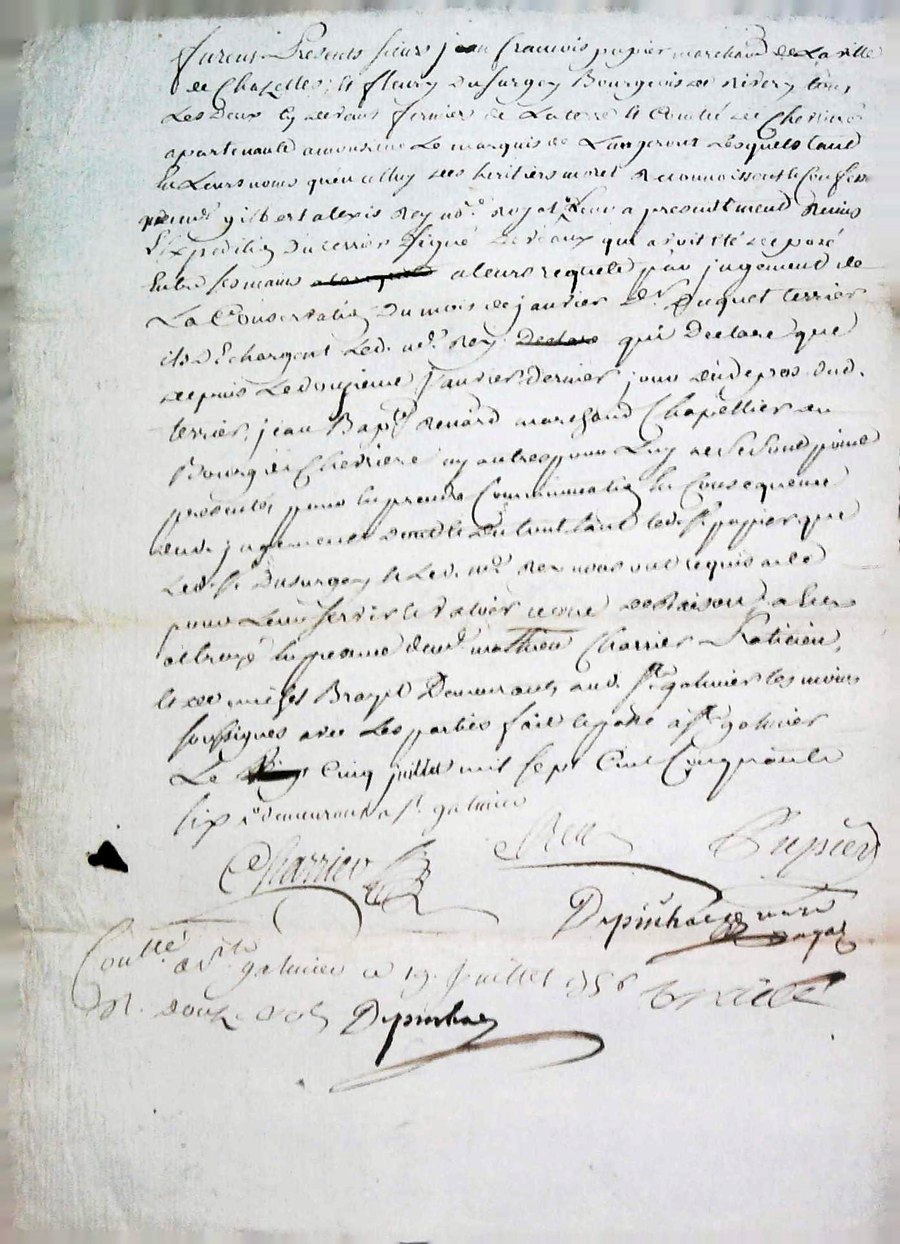 furent Presents sieurs jean francois pupier marchand de La ville
de Chazelles, et fleury Dusurgey Bourgeois de Rivery tous
Les Deux cy devant fermier de La terre et Comté de Chevrier
apartenante a monsieur Le marquis de Langeront Lesquels tant
En Leurs noms qu'en celluy des heritiers moret Reconnoissent et Confessent
gilbert alexis Rey no.re Royal Leur a presentement Remis
L'Expedition Du terrier signé Deveaux qui avoit été deposé
Entre ses mains a leurs requete par jugement de
La Conservation Du mois de janvier Der Duquel terrier
ils Dechargent Led. no.re Rey Declare qui Declare que
depuis Le douzieme Janvier dernier, jour du depos dud.
terrier, jean Bapt. Renard marchand Chapellier du
Bourg de Chevriere ny autres pour Luy ne se sont point
presentés pour En prendre Communication En Consequence
dud. jugement dont et Du tout tant Led. sr. pupier que
Led. sr. Dusurgey et Led. no.re Rey nous ont requis acte
pour Leur servir et Valoir ce que De Raison, a Eux
octroyé En presence de mathieu Charrier Praticien,
et de michel Brazil Demeurants aud. st. galmier les moins
soussignes avec Les parties fait et passé a st. galmier
Le cinq juillet mil sept Cent Cinquante
six demeurant a st. galmier
Charrier Rey Pupier
Depinhac
Con.llé a st. galmier ce 19 Juillet 1756
R. douze sols Depinhac